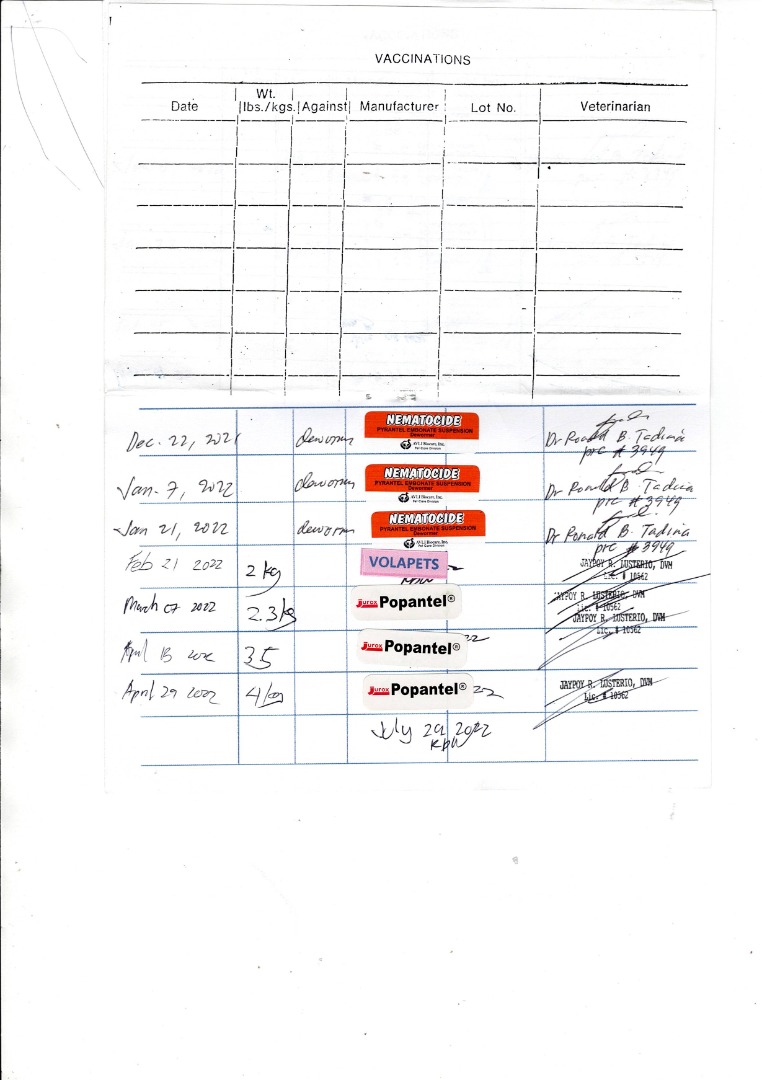 VACCINATIONS
Date Wt. lbs./kgs. Against Manufacturer Lot No. Veterinarian
Dec. 22, 2021 deworm NEMATOCIDE Dr Ronald B. Tadina
PYRANTEL EMBONATE SUSPENSION
Dewormer
AVLI Biocare, Inc.
Pet Care Division
prc # 3949
Jan. 7, 2022 deworm NEMATOCIDE Dr Ronald B. Tadina
PYRANTEL EMBONATE SUSPENSION
Dewormer
AVLI Biocare, Inc.
Pet Care Division
prc # 3949
Jan 21, 2022 deworm NEMATOCIDE Dr Ronald B. Tadina
PYRANTEL EMBONATE SUSPENSION
Dewormer
AVLI Biocare, Inc.
Pet Care Division
prc # 3949
Feb 21 2022 2 kg VOLAPETS JAYPOY R. LUSTERIO, DVM
Lic. # 10562
March 07 2022 2.3 kg Jurox Popantel® JAYPOY R. LUSTERIO, DVM
Lic. # 10562
April 13 3.5 Jurox Popantel® 22 JAYPOY R. LUSTERIO, DVM
Lic. # 10562
April 29 2022 4 kg Jurox Popantel® 22 JAYPOY R. LUSTERIO, DVM
Lic. # 10562
July 29 2022